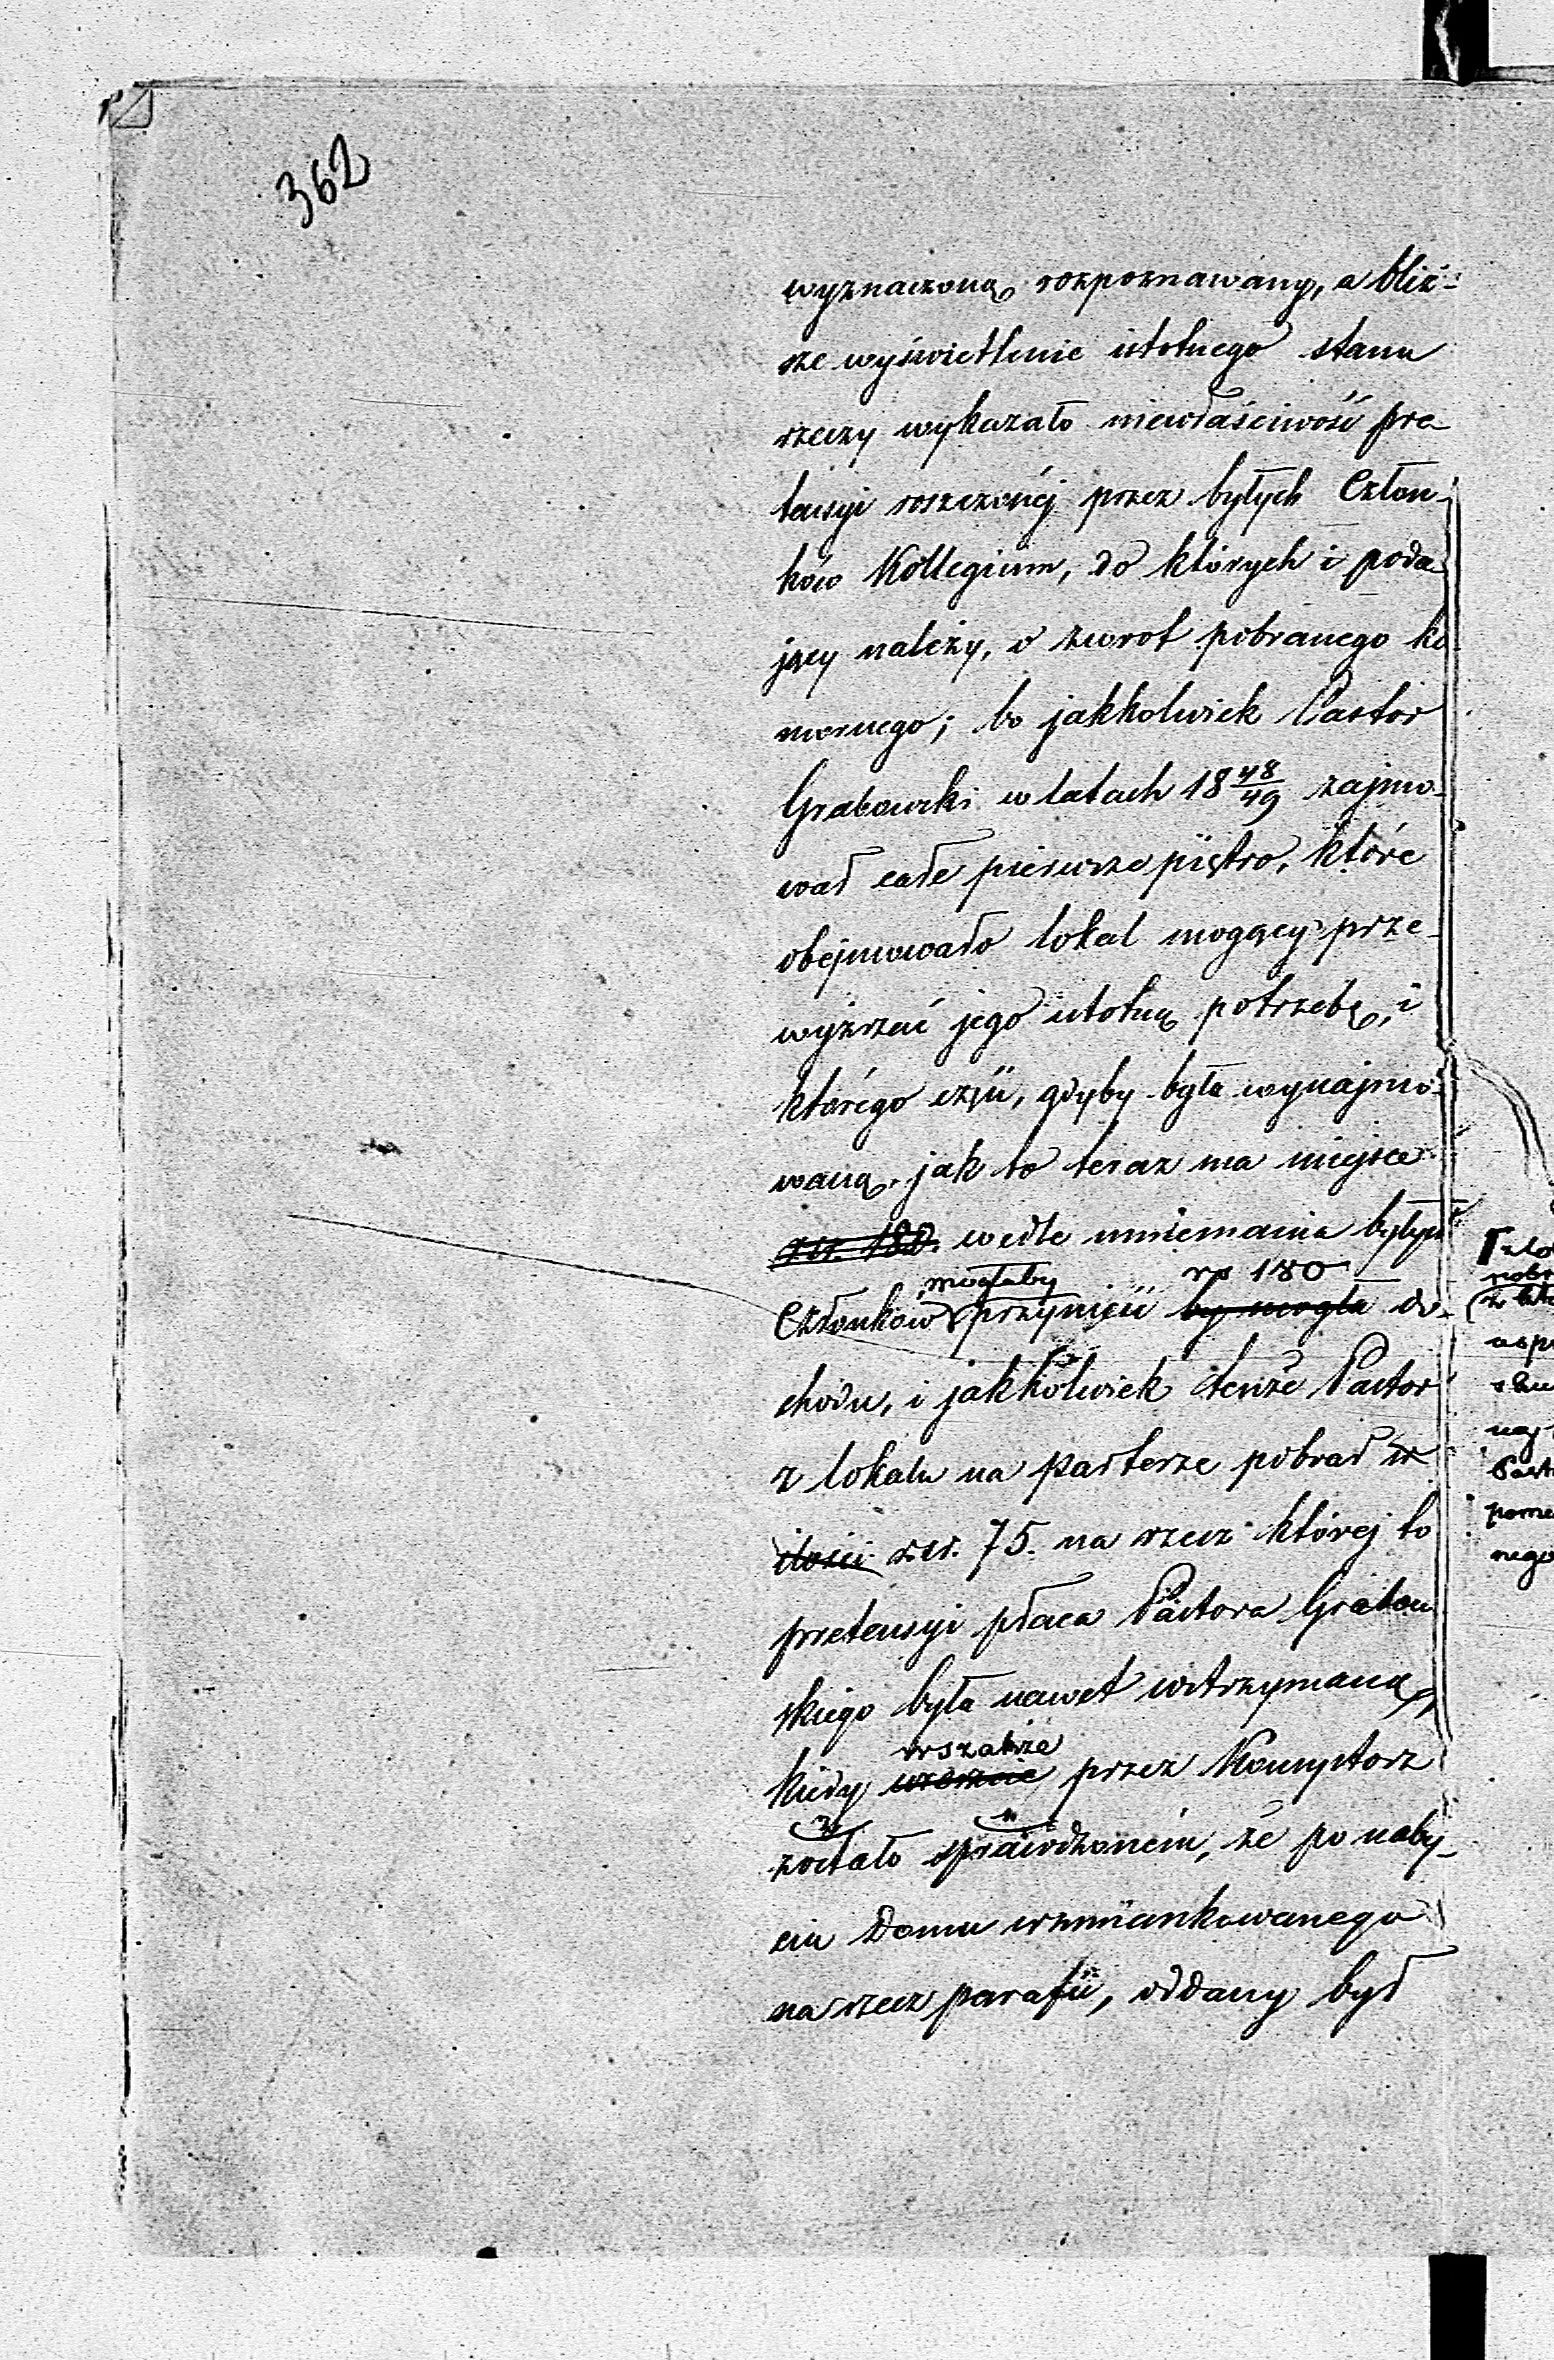 362
wyznaczoną rozpoznawany, a bliż-
sze wyświetlenie istotnego stanu
rzeczy wykazało niewłaściwość pre-
tensyi roszczonéj przez byłych Człon-
ków Kollegium, do których i poda-
jący należy, o zwrot pobranego ko-
mornego; bo jakkolwiek Pastor
Grabowski w latach 18 48/49 zajmo-
wał całe pierwsze piętro, które
obejmowało lokal mogący prze-
wyższać jego istotną potrzebę, i
którego część, gdyby była wynajmo-
waną, jak to teraz ma miejsce
rsr. 180. wedle mniemania byłych
mogłaby rs 180
Członków przynieść by mogła do-
chodu, i jakkolwiek tenże Pastor
z lokalu na parterze pobrał w
ilości rsr. 75. na rzecz której to
pretensyi płaca Pastora Grabow
skiego była nawet wstrzymaną,
wszakże
kiedy przez Konsystorz
zostało sprawdzonem, że po naby-
ciu Domu wzmiankowanego
na rzecz parafii, oddany był